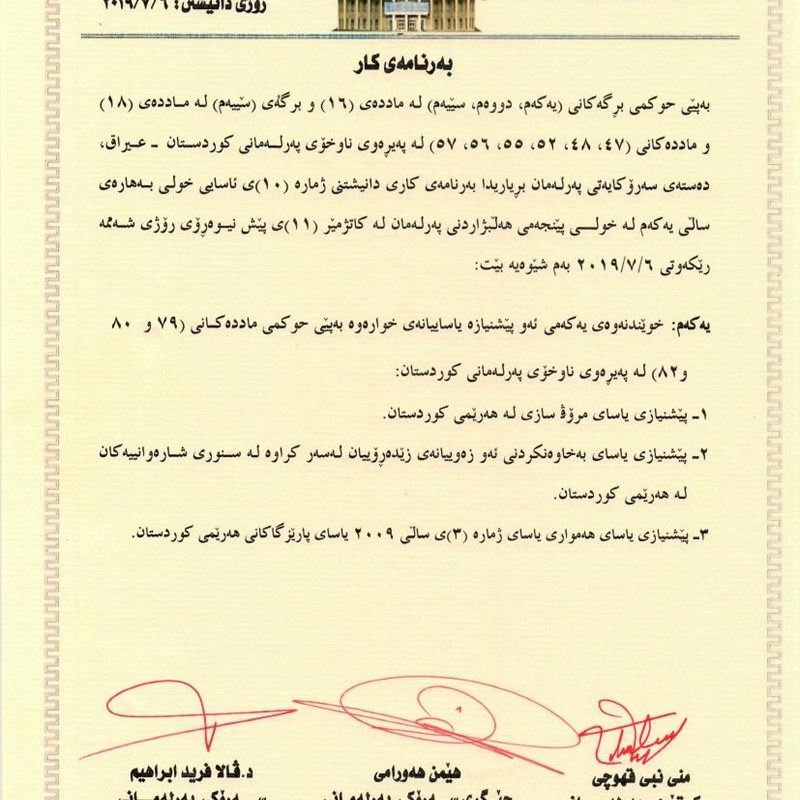 رۆژی دانیشتن: ٢٠١٩/٧/٦
بەرنامەی کار
بەپێی حوکمی برگەکانی (یەکەم، دووەم، سێیەم) لە ماددەی (١٦) و برگەی (سێیەم) لە ماددەی (١٨)
و ماددەکانی (٤٧، ٤٨، ٥٢، ٥٥، ٥٦، ٥٧) لە پەیڕەوی ناوخۆی پەرلەمانی کوردستان - عیراق،
دەستەی سەرۆکایەتی پەرلەمان بڕیاریدا بەرنامەی کاری دانیشتنی ژمارە (١٠)ی ئاسایی خولی بەهارەی
ساڵی یەکەم لە خولی پێنجەمی هەڵبژاردنی پەرلەمان لە کاتژمێر (١١)ی پێش نیوەڕۆی رۆژی شەممە
رێکەوتی ٢٠١٩/٧/٦ بەم شێوەیە بێت:
یەکەم: خوێندنەوەی یەکەمی ئەو پێشنیازە یاساییانەی خوارەوە بەپێی حوکمی ماددەکانی (٧٩ و ٨٠
و٨٢) لە پەیڕەوی ناوخۆی پەرلەمانی کوردستان:
١- پێشنیازی یاسای مرۆڤ سازی لە هەرێمی کوردستان.
٢- پێشنیازی یاسای بەخاوەنکردنی ئەو زەوییانەی زێدەڕۆییان لەسەر کراوە لە سنوری شارەوانییەکان
لە هەرێمی کوردستان.
٣- پێشنیازی یاسای هەمواری یاسای ژمارە (٣)ی ساڵی ٢٠٠٩ یاسای پارێزگاکانی هەرێمی کوردستان.
منی نبی قهوچی هێمن هەورامی د.ڤالا فرید ابراهیم
جێگری سەرۆکی پەرلەمانی سەرۆکی پەرلەمانی